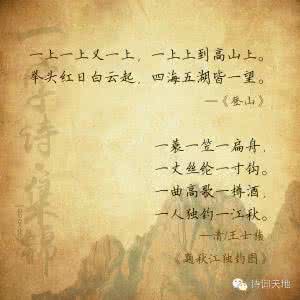 一上一上又一上，一上上到高山上。
举头红日白云起，四海五湖皆一望。
—《登山》
一蓑一笠一扁舟，
一丈丝纶一寸钩。
一曲高歌一樽酒，
一人独钓一江秋。
—清/王士禛
《题秋江独钓图》
一字诗·集锦
诗词天地